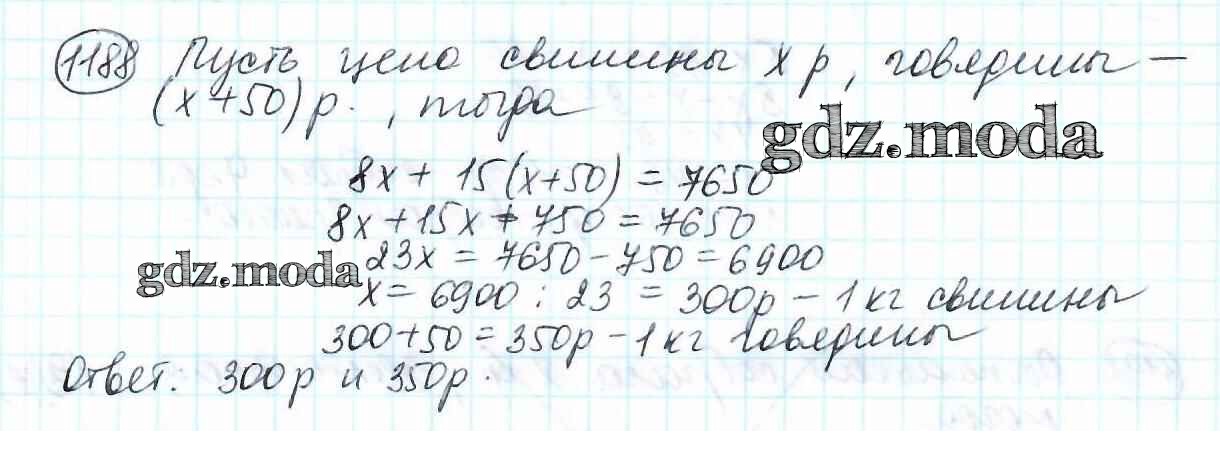 1188 Пусть цена свинины x р, говядины –
(x+50) р., тогда
gdz.moda
8x + 15(x+50) = 7650
8x+15x+750=7650
23x = 7650-750=6900
gdz.moda
x= 6900 : 23 = 300р – 1 кг свинины
300+50=350р – 1 кг говядины
Ответ: 300р и 350р.